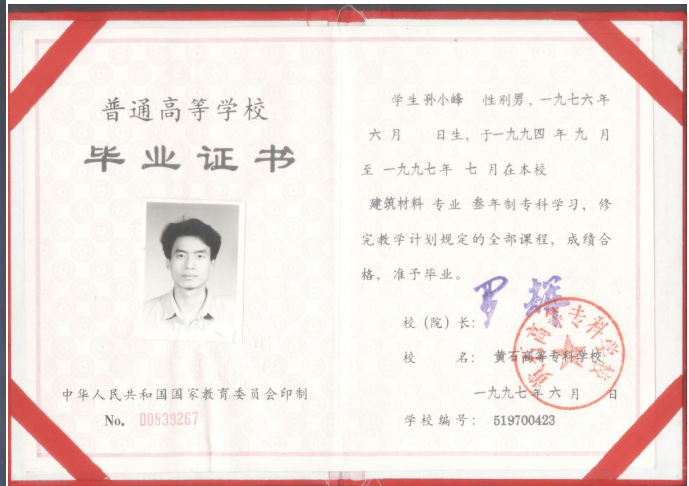 普通高等学校
毕业证书
中华人民共和国国家教育委员会印制
No. 00839267
学生孙小峰 性别男，一九七六年
六月 日生，于一九九四年九月
至一九九七年 七月在本校
建筑材料 专业 叁年制专科学习，修
完教学计划规定的全部课程，成绩合
格，准予毕业。
校（院）长：罗辉
校 名：黄石高等专科学校
黄石高等专科学校
一九九七年六月 日
学校编号：519700423